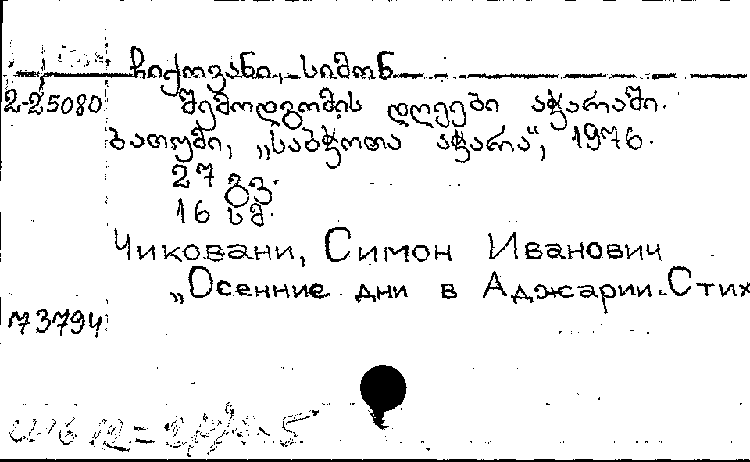 ჩიქოვანი, სიმონ
2-25080 შემოდგომის დღეები აჭარაში.
ბათუმი, „საბჭოთა აჭარა“, 1976.
27 გვ.
16 სმ.
Чиковани, Симон Иванович
„Осенние дни в Аджарии. Стих
73794